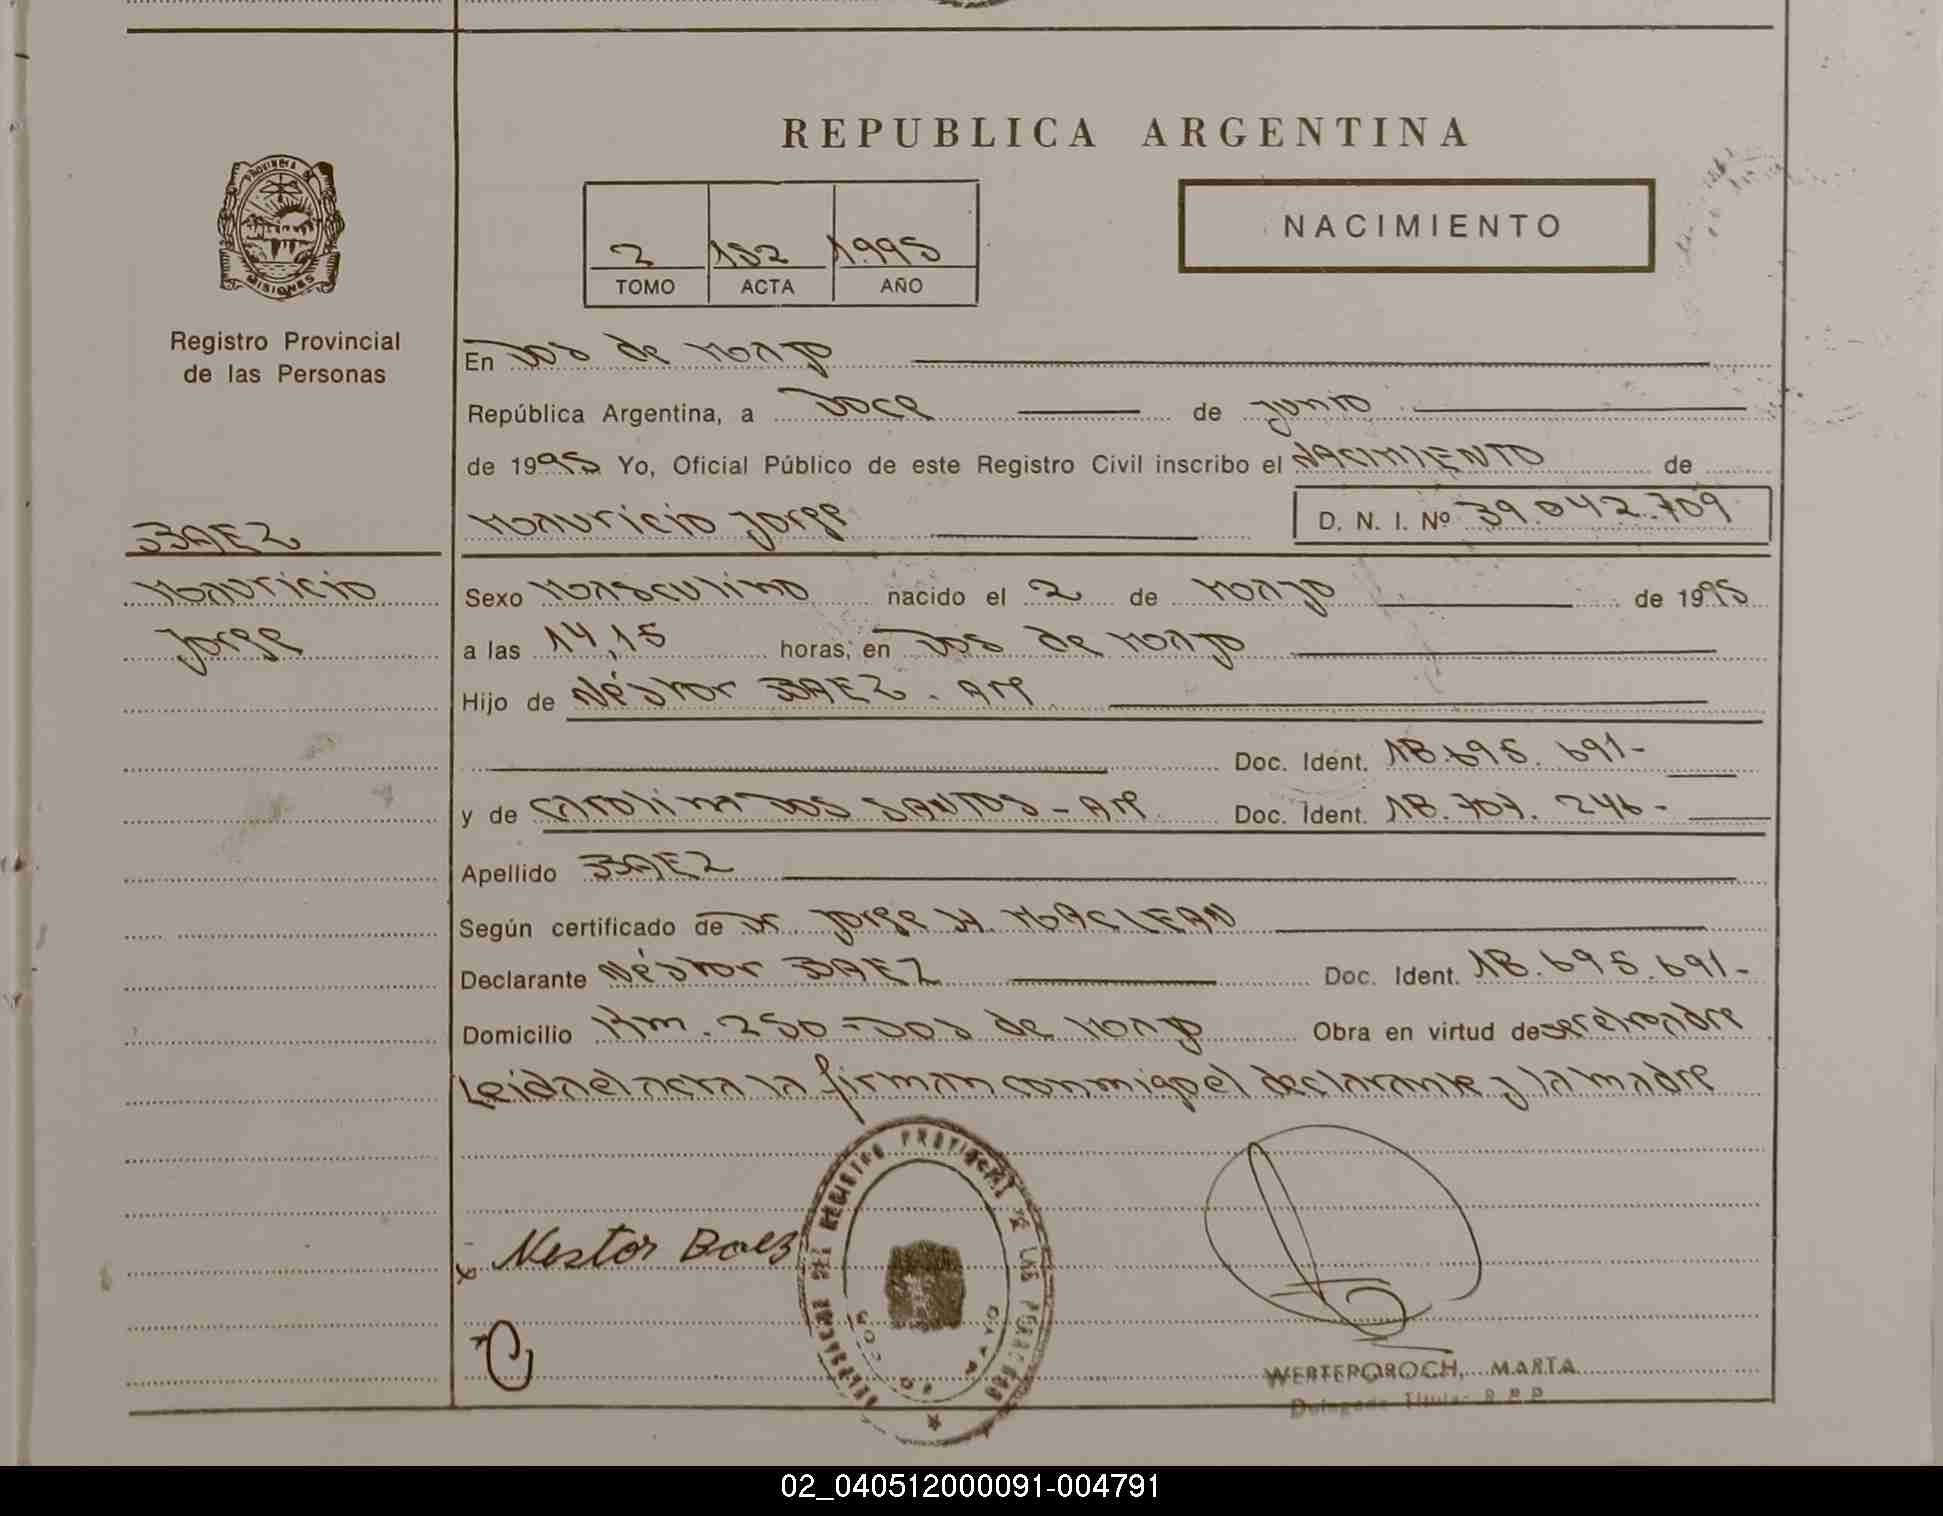 REPUBLICA ARGENTINA
PROVINCIA DE
MISIONES
Registro Provincial
de las Personas
2 182 1.995
TOMO ACTA AÑO
NACIMIENTO
En Dos de Mayo
República Argentina, a Doce de junio
de 1995 Yo, Oficial Público de este Registro Civil inscribo el NACIMIENTO de
Mauricio Jorge D. N. I. Nº 39.042.709
BAEZ
Mauricio
Jorge
Sexo Masculino nacido el 2 de Mayo de 1995
a las 14,15 horas, en Dos de Mayo
Hijo de Néstor BAEZ - Arg
Doc. Ident. 18.695.691-
y de Carolina DOS SANTOS - Arg Doc. Ident. 18.707.246-
Apellido BAEZ
Según certificado de Dr. Jorge H. MACLEAN
Declarante Néstor BAEZ Doc. Ident. 18.695.691-
Domicilio Km. 250 - Dos de Mayo Obra en virtud de ser el padre
Leida el acta la firman conmigo el declarante y la madre
Nestor Baez
REGISTRO PROVINCIAL DE LAS PERSONAS
WERTEPOROCH, MARTA
Delegada Titular R.P.P.
02_040512000091-004791